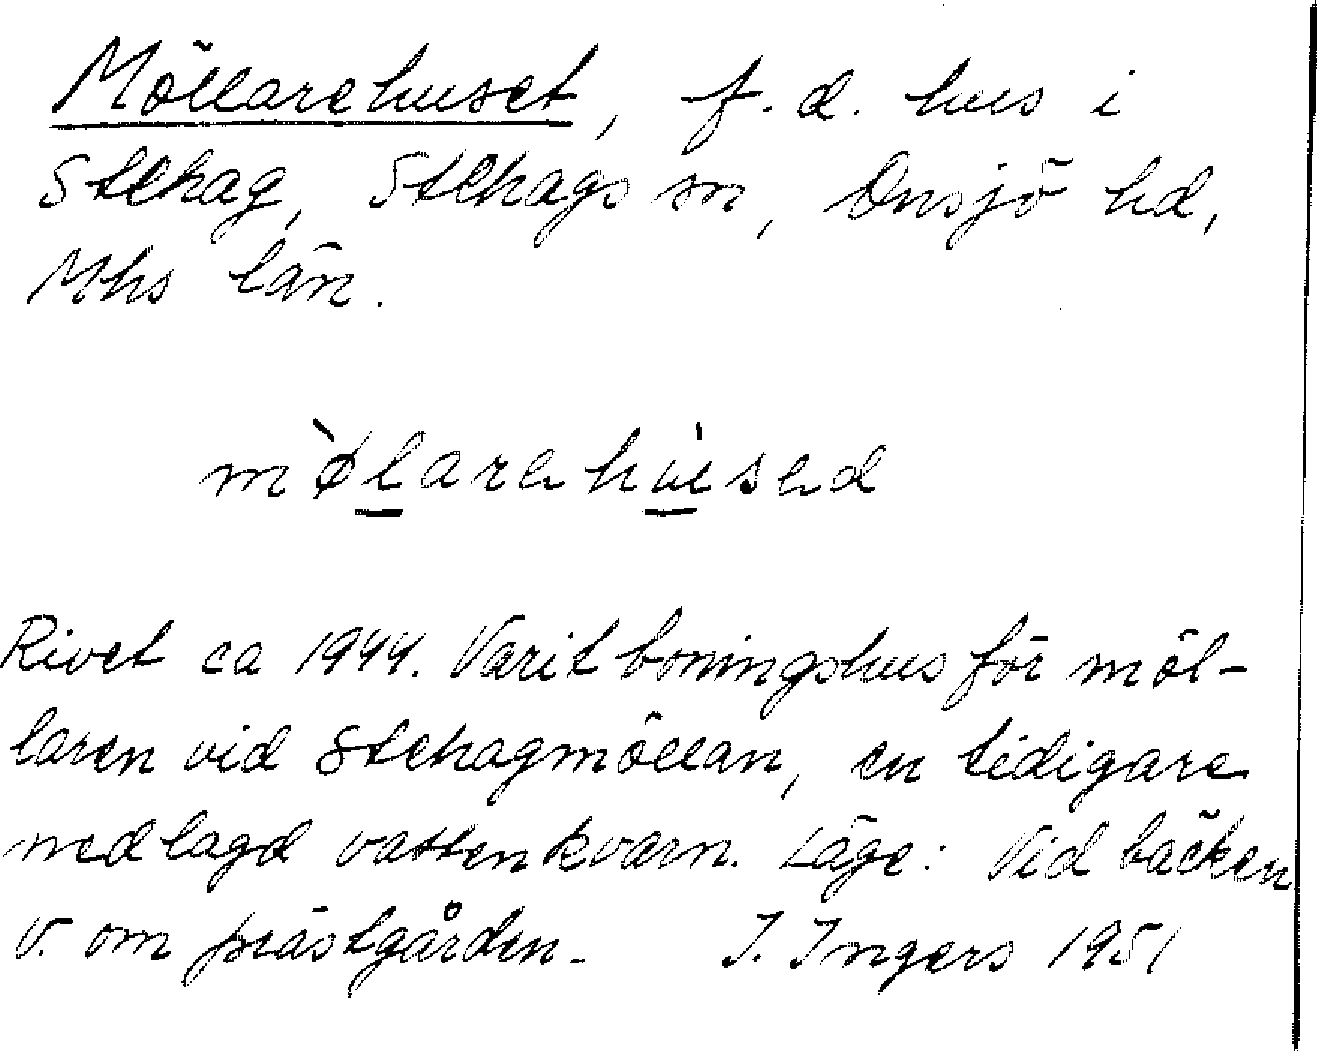 Möllarehuset, f.d. hus i
Stehag, Stehags sn, Onsjö hd,
Mhs län.
mø̀larehu̇sed
Rivet ca 1944. Varit boningshus för möl-
laren vid Stehagmöllan, en tidigare
nedlagd vattenkvarn. Läge: Vid bäcken
V. om prästgården. I. Ingers 1951